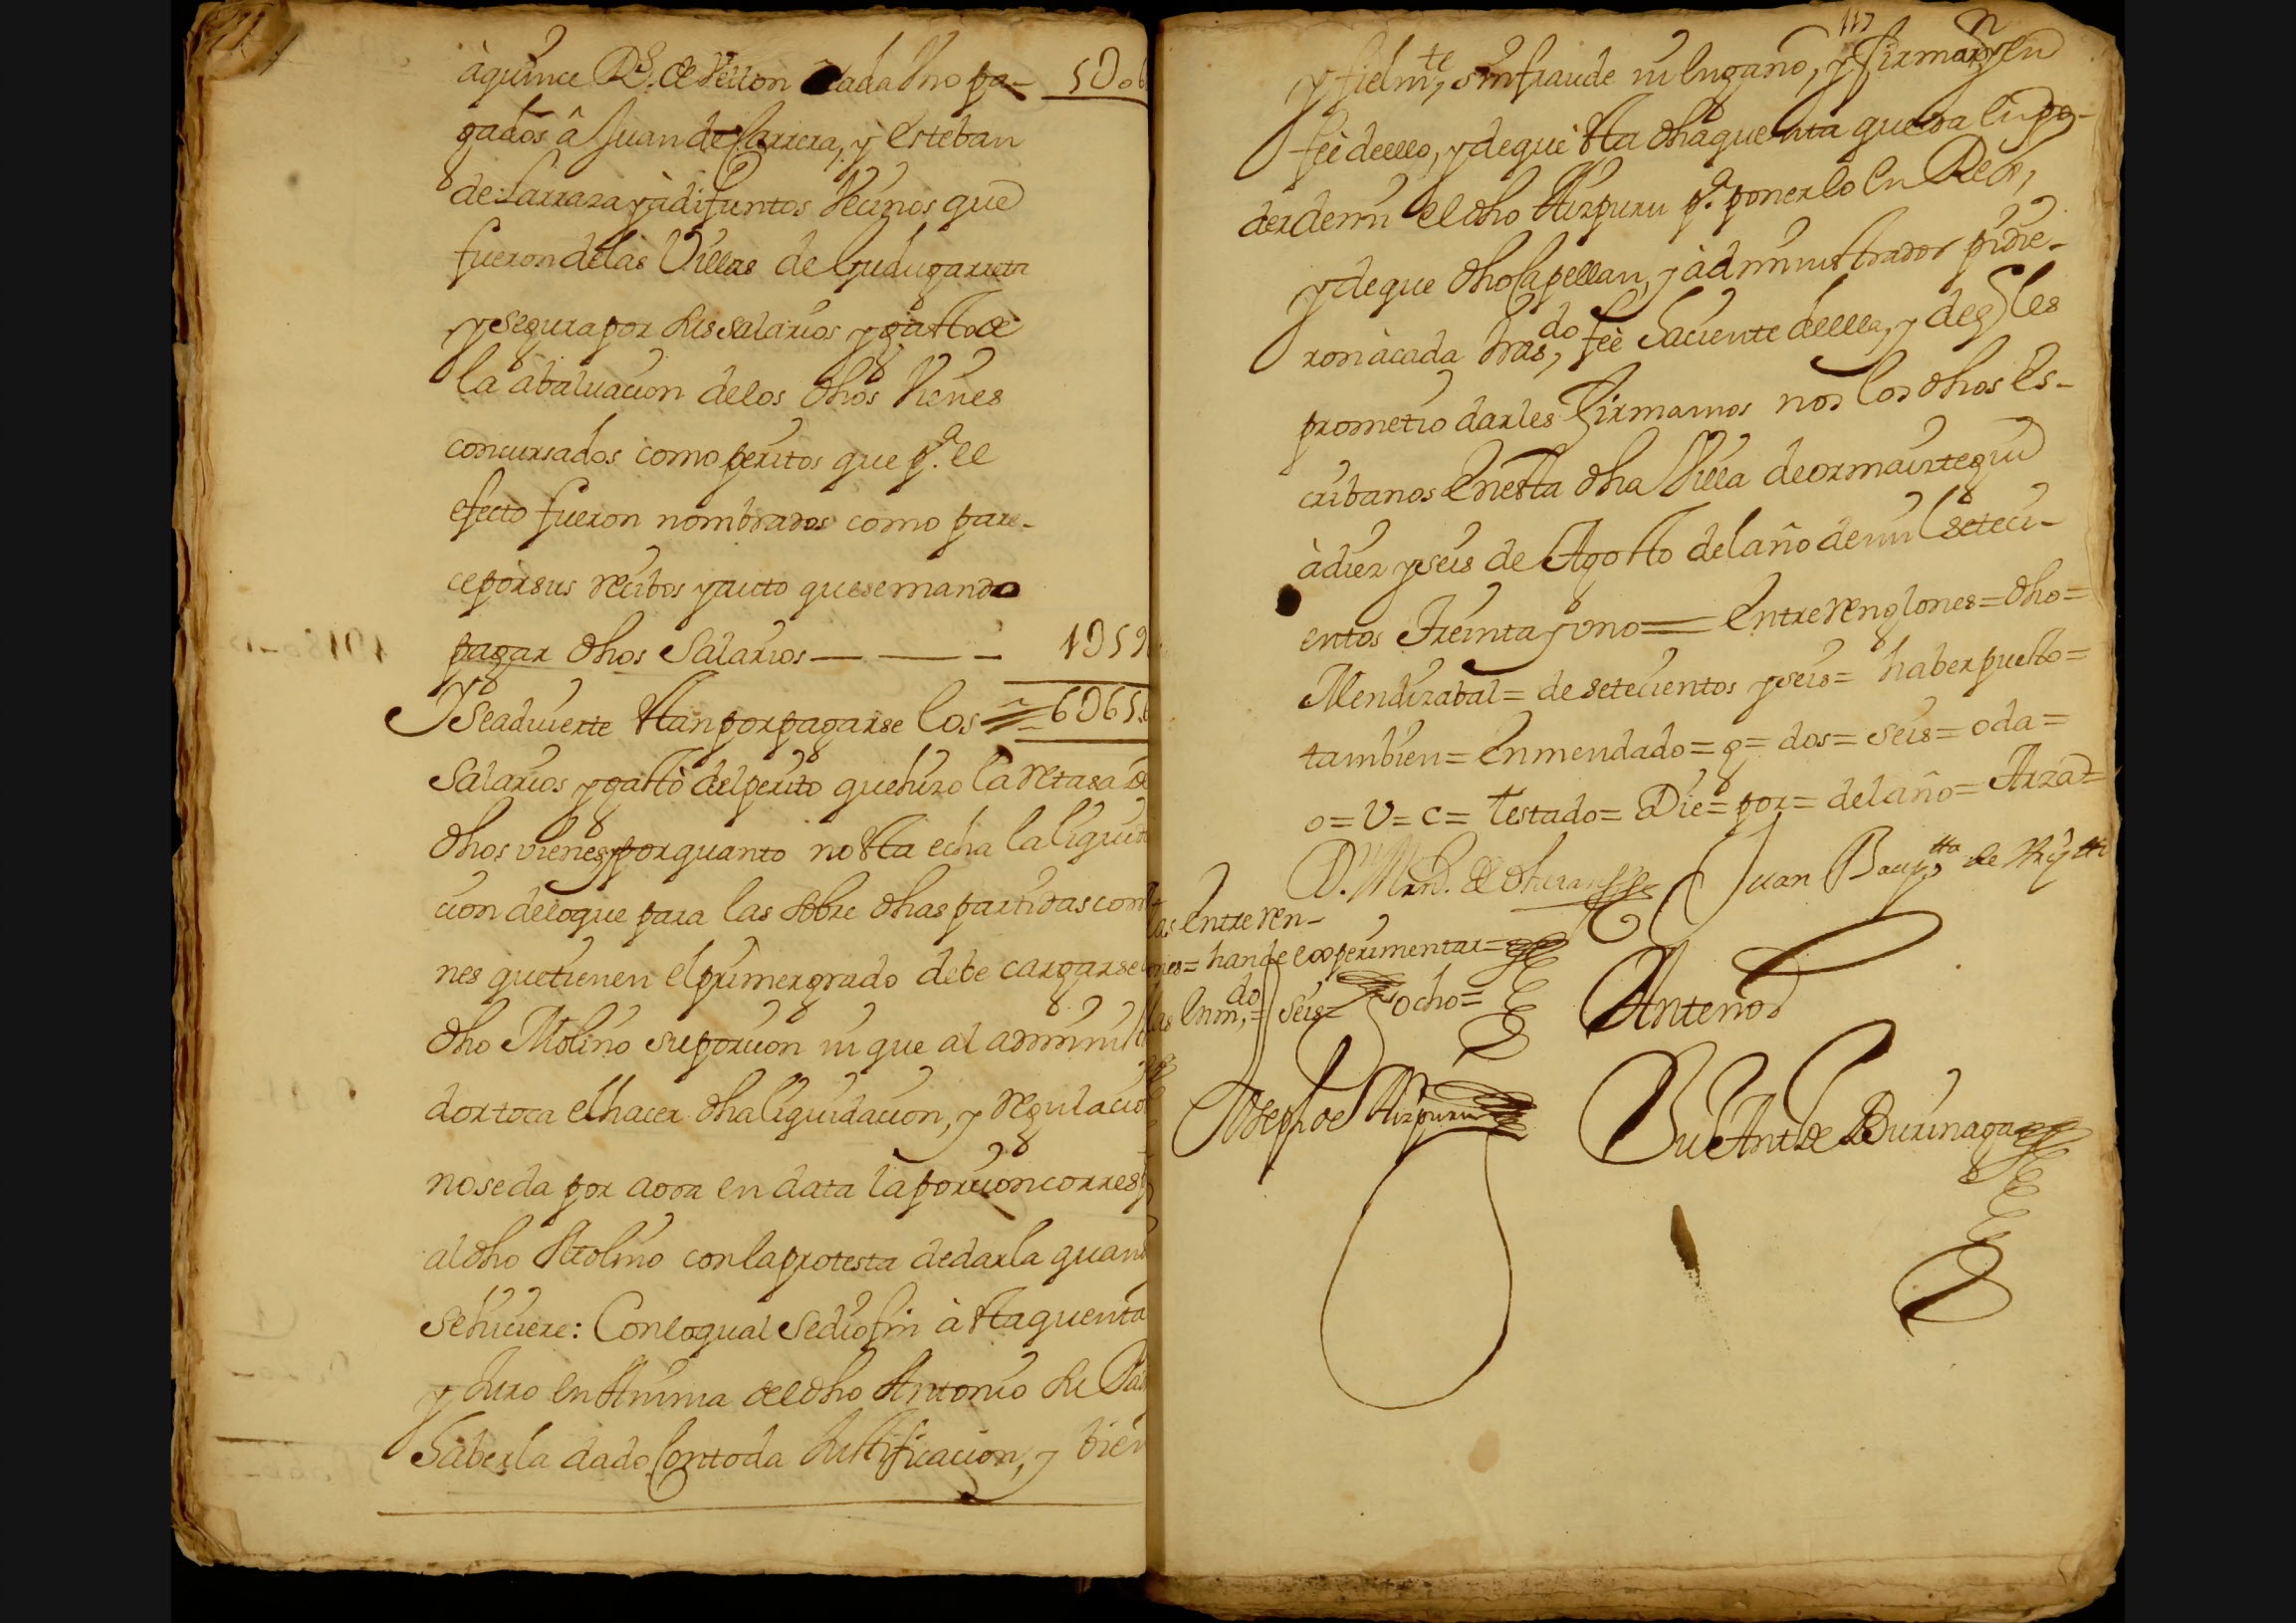 à quince Rs. de Vellon cada Vno pa- 5D06
gados â Juan de Larrera, y Esteban
de Larraza yà difuntos Vecinos que
fueron delas Villas de Gudugarreta
y Segura por sus salarios y gasto de
la abaluacion delos dhos Vienes
concursados como peritos que pª. el
efecto fueron nombrados como pare-
ce por sus recibos y auto que se mando
pagar dhos Salarios — — — 1D59
Y Se aduierte Estan por pagarse los = 6D65
Salarios y gasto del perito que hizo la retasa de
dhos vienes, por quanto no Esta echa la liquid
cion delo que para las sobre dhas partidas con
nes que tienen el primer grado debe cargarse
dho Molino su porcion ni que al administ
dor toca el hacer dha liquidacion, y regulacio
no se da por aora en data la porcion corresp
al dho Molino con la protesta de darla quan
se hiciere: Con lo qual se dio fin à Esta quenta
y Juro en Anima del dho Antonio su Pa
haberla dado Con toda Justificacion, y bien
117
y fielmte, sin fraude ni engaño, y firmaron en
feè deello, y de que Esta dha quenta queda en po-
der de mi el dho Aizpuru pª. ponerlo en
y de que dho Capellan, y administrador pidie-
ron à cada trasdo, feè haciente de ella, y de q les
prometio darles Firmamos nos los dhos Es-
cribanos En esta dha Villa de ormaiztegui
à diez y seis de Agosto del año de mil seteci-
entos Treinta y uno = Entre renglones = dho =
Mendizabal = de setecientos y seis = haber puesto =
tambien = Enmendado = q = dos = seis = oda =
o = V = c = Testado = Die = por = del año = Arza =
Juan Bauptta de
las Entre ren-
nes = hande experimentar =
las Enmdo, = seis = ocho =
Ante nos
Joseph de Aizpuru
Antt de Burinaga